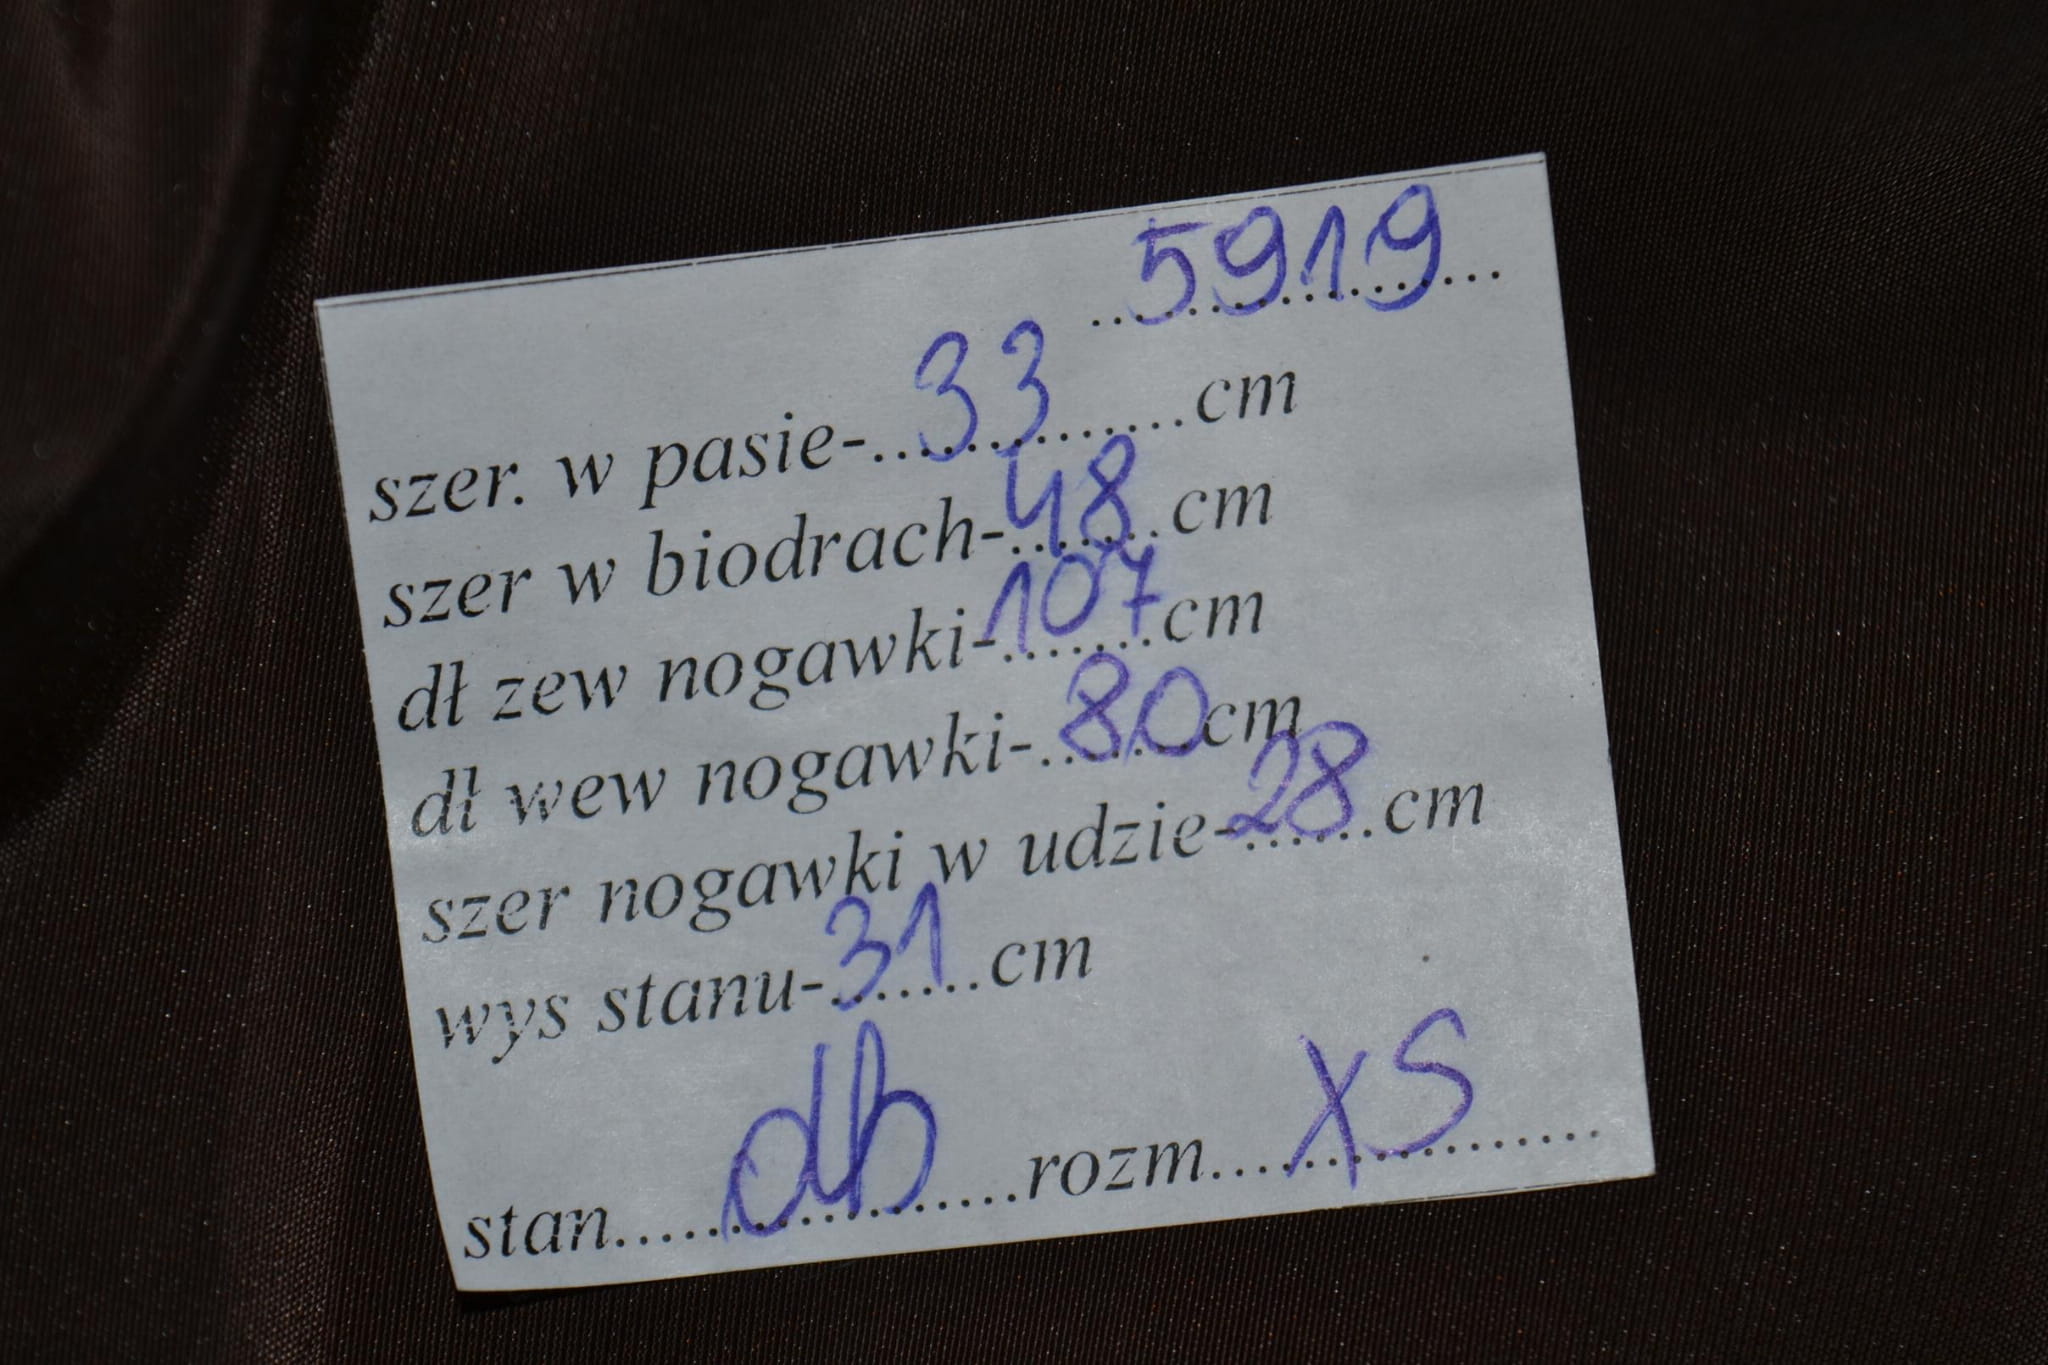 5919
szer. w pasie-33cm
szer w biodrach-48cm
dł zew nogawki-107cm
dł wew nogawki-80cm
szer nogawki w udzie-28cm
wys stanu-31cm
stan db rozm XS